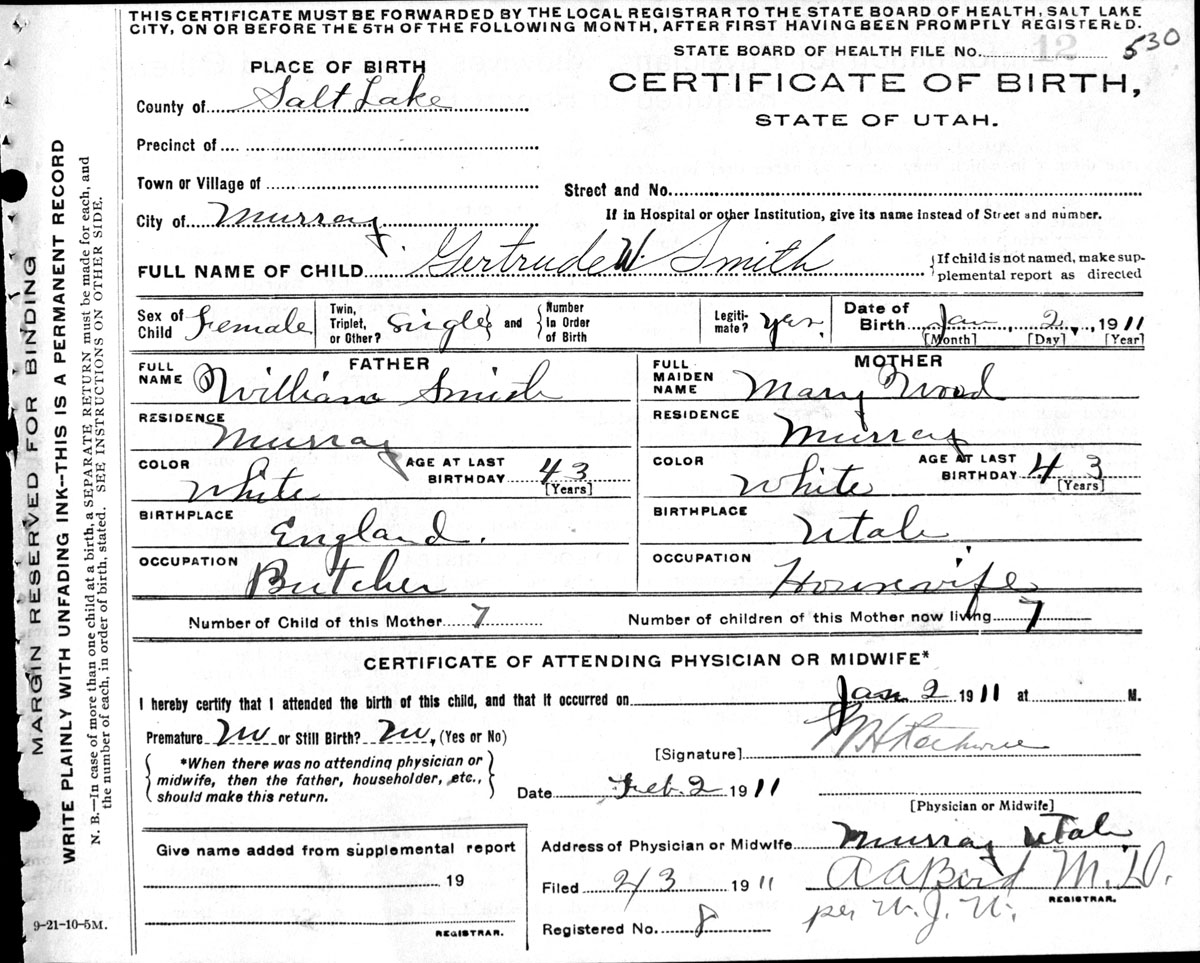 THIS CERTIFICATE MUST BE FORWARDED BY THE LOCAL REGISTRAR TO THE STATE BOARD OF HEALTH, SALT LAKE
CITY, ON OR BEFORE THE 5TH OF THE FOLLOWING MONTH, AFTER FIRST HAVING BEEN PROMPTLY REGISTERED.
STATE BOARD OF HEALTH FILE No. 12 530
PLACE OF BIRTH
CERTIFICATE OF BIRTH,
STATE OF UTAH.
County of Salt Lake
Precinct of
Town or Village of
Street and No.
City of Murray
If in Hospital or other Institution, give its name instead of Street and number.
FULL NAME OF CHILD Gertrude W. Smith {If child is not named, make sup-
plemental report as directed
Sex of Child Female
Twin, Triplet, or Other? Single and Number In Order of Birth
Legiti-mate? yes
Date of Birth Jan, 2, 1911
[Month] [Day] [Year]
FATHER
FULL NAME William Smith
RESIDENCE Murray
COLOR White AGE AT LAST BIRTHDAY 43 [Years]
BIRTHPLACE England.
OCCUPATION Butcher
MOTHER
FULL MAIDEN NAME Mary Wood
RESIDENCE Murray
COLOR White AGE AT LAST BIRTHDAY 43 [Years]
BIRTHPLACE Utah
OCCUPATION Housewife
Number of Child of this Mother 7 Number of children of this Mother now living 7
CERTIFICATE OF ATTENDING PHYSICIAN OR MIDWIFE*
I hereby certify that I attended the birth of this child, and that it occurred on Jan 2 1911 at M.
Premature No or Still Birth? No, (Yes or No)
[Signature]
*When there was no attending physician or
midwife, then the father, householder, etc.,
should make this return.
Date Feb. 2 1911
[Physician or Midwife]
Give name added from supplemental report
19
REGISTRAR.
Address of Physician or Midwife Murray Utah
Filed 2/3 1911 M.D.
REGISTRAR.
Registered No. 8 per W. J. W.
9-21-10-5M.
MARGIN RESERVED FOR BINDING
WRITE PLAINLY WITH UNFADING INK--THIS IS A PERMANENT RECORD
N. B.—In case of more than one child at a birth, a SEPARATE RETURN must be made for each, and
the number of each, in order of birth, stated. SEE INSTRUCTIONS ON OTHER SIDE.